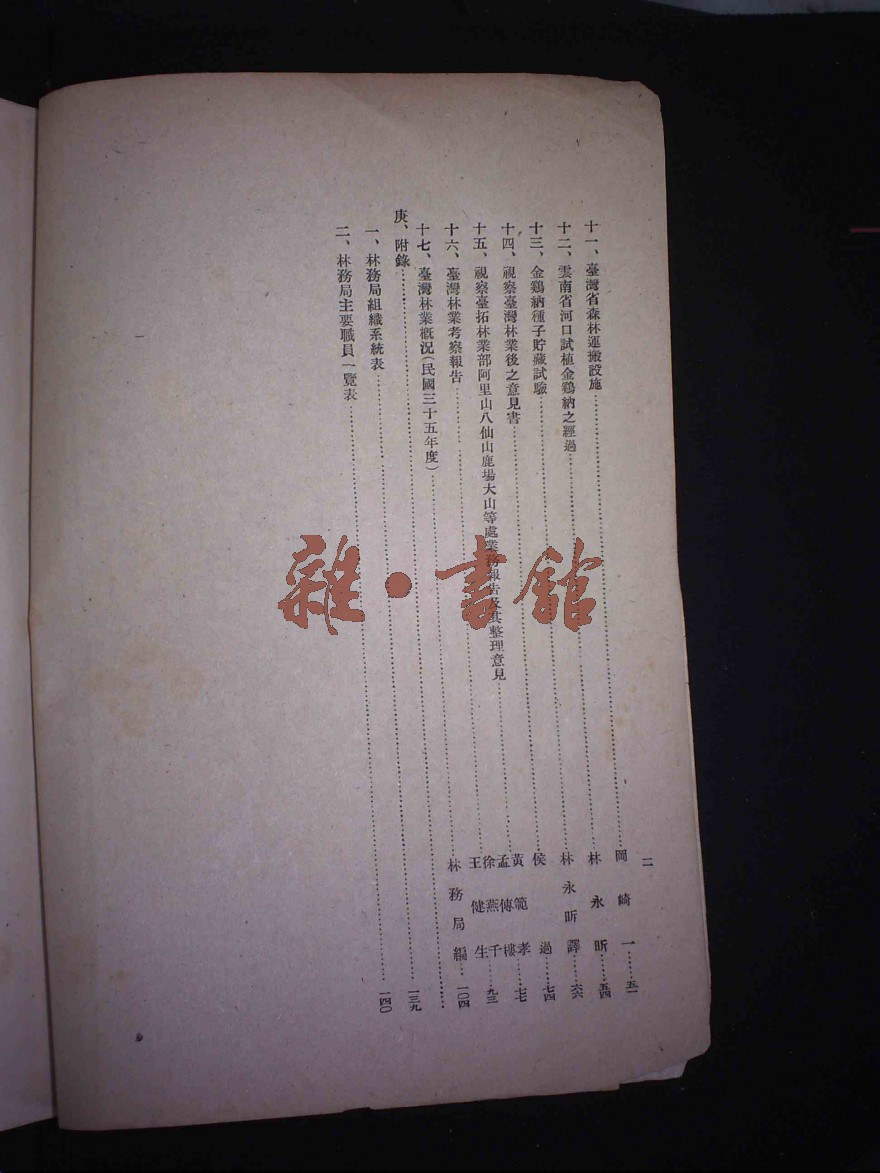 二
十一、臺灣省森林運搬設施……岡崎一……五一
十二、雲南省河口試植金鷄納之經過……林永昕……五四
十三、金鷄納種子貯藏試驗……林永昕譯……六六
十四、視察臺灣林業後之意見書……侯過……七四
十五、視察臺拓林業部阿里山八仙山鹿場大山等處業務報告及其整理意見……黃範孝 孟傳樓……七七
十六、臺灣林業考察報告……徐燕千 王健生……九三
十七、臺灣林業概況（民國三十五年度）……林務局編……一〇四
庚、附錄
一、林務局組織系統表……一三九
二、林務局主要職員一覽表……一四〇
雜·書館